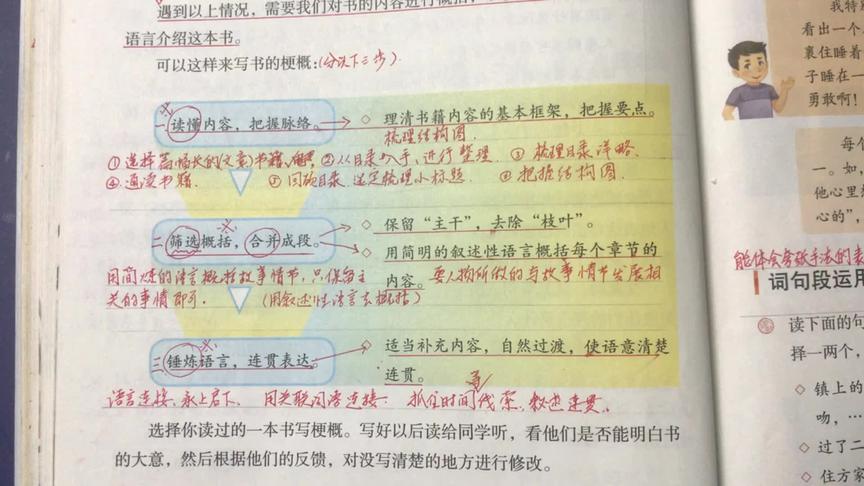 遇到以上情况，需要我们对书的内容进行概括，
语言介绍这本书。
可以这样来写书的梗概：(分以下三步).
一 读懂内容，把握脉络。
◇ 理清书籍内容的基本框架，把握要点。
梳理结构图.
①选择篇幅长的(文章)书籍 ②从目录入手，进行整理. ③梳理目录详略、
④通读书籍. ⑤回顾目录 梳理小标题. ⑥把握结构图.
二 筛选概括，合并成段。
◇ 保留“主干”，去除“枝叶”。
◇ 用简明的叙述性语言概括每个章节的
内容。要人物所做的与故事情节发展相
用简短的语言概括故事情节，只保留主
关的事情即可. (用叙述性语言去概括)
三 锤炼语言，连贯表达。
◇ 适当补充内容，自然过渡，使语意清楚
连贯。
语言连接、承上启下、 用关联词语连接 抓住时间 叙述连贯.
选择你读过的一本书写梗概。写好以后读给同学听，看他们是否能明白书
的大意，然后根据他们的反馈，对没写清楚的地方进行修改。
我特
看出一个
裹住睡着
子睡在一
勇敢啊！
每个
一。如，
他心里想
心的”，
能体会夸张手法的表
词句段运用
读下面的句
择一两个，
◇ 镇上的
吻，…
◇ 过了二
◇ 住方家